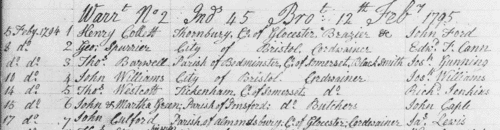 Warrt. No 2 Ind 45 Brot. 12th Feby 1795
5 Feby. 1794 1 Henry Collett Thornbury, C. of Glocester Brazier &c John Ford
8 do. 2 Geo. Spurrier City of Bristol Cordwainer Edwd. T. Cann
do do. 3 Thos. Barwell Parish of Bedminster, C. of Somerset, Black Smith Jos. Gunning
10 do. 4 John Williams City of Bristol. Cordwainer Jos. Williams
14 do 5 Thos. Westcott Tickenham, C. of Somerset do Richd. Jenkins
16 do 6 John & Martha Green; Parish of Innsford; do Butchers John Caple
17 do. 7 John Culford, Parish of Almondsbury; C. of Glocester; Cordwainer Jas. Lewis